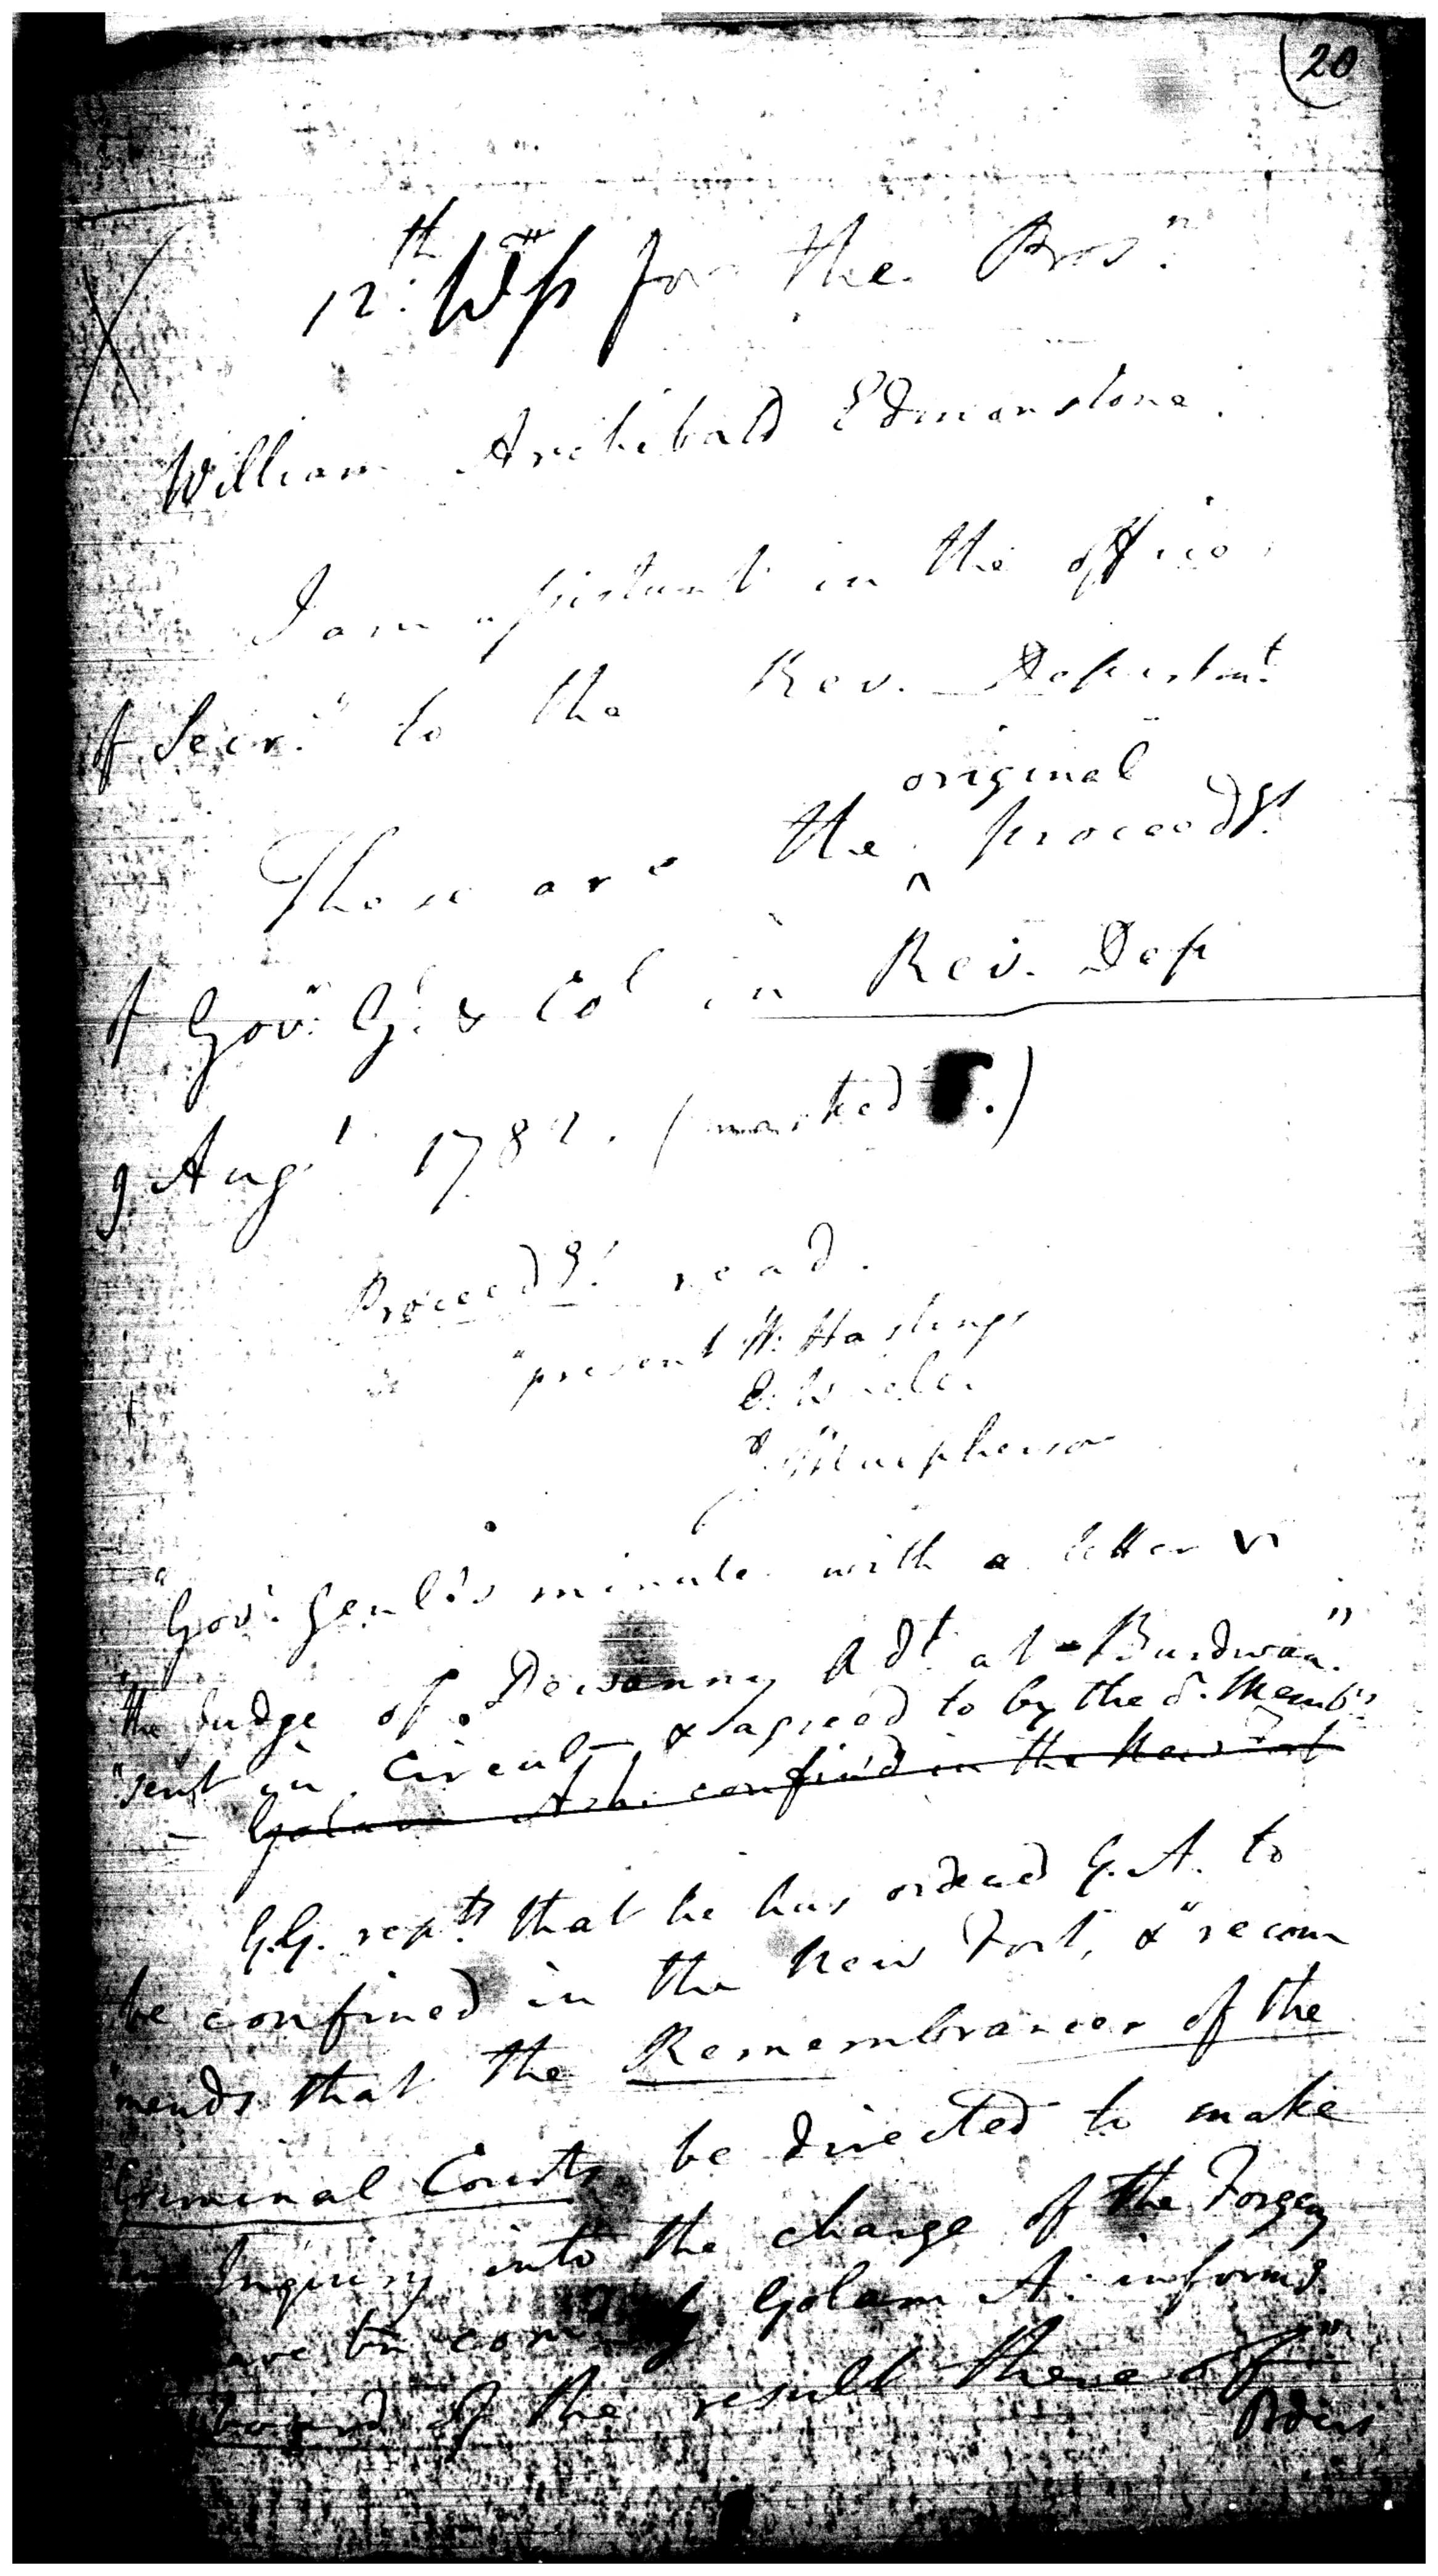 (20
12th. Ws for the Prosn.
William Archibald Edmonstone.
I am assistant in the office
of Secry. to the Rev. Departmt.
original
These are the ^ proceedgs.
of Govr. Gl. & Col in Rev. Dep
9 Augt. 1782. (marked .)
Proceedgs. read.
"present W. Hastings
E. Wheler
J. Macpherson
"Govr. Genl's minute with a letter
"the Judge of Dewanny Adt at Burdwan."
"sent in Circuln & agreed to by the Membrs
Golam Ash. confin'd in the New Fort
G.G. repts that he has ordered G.A. to
be confined in the New Fort, & "recom
"mends that the Remembrancer of the
"Criminal Courts be directed to make
Inquiry into the charge of the Forgery
have bn Golam A. informg.
board of the result thereof"
Orders